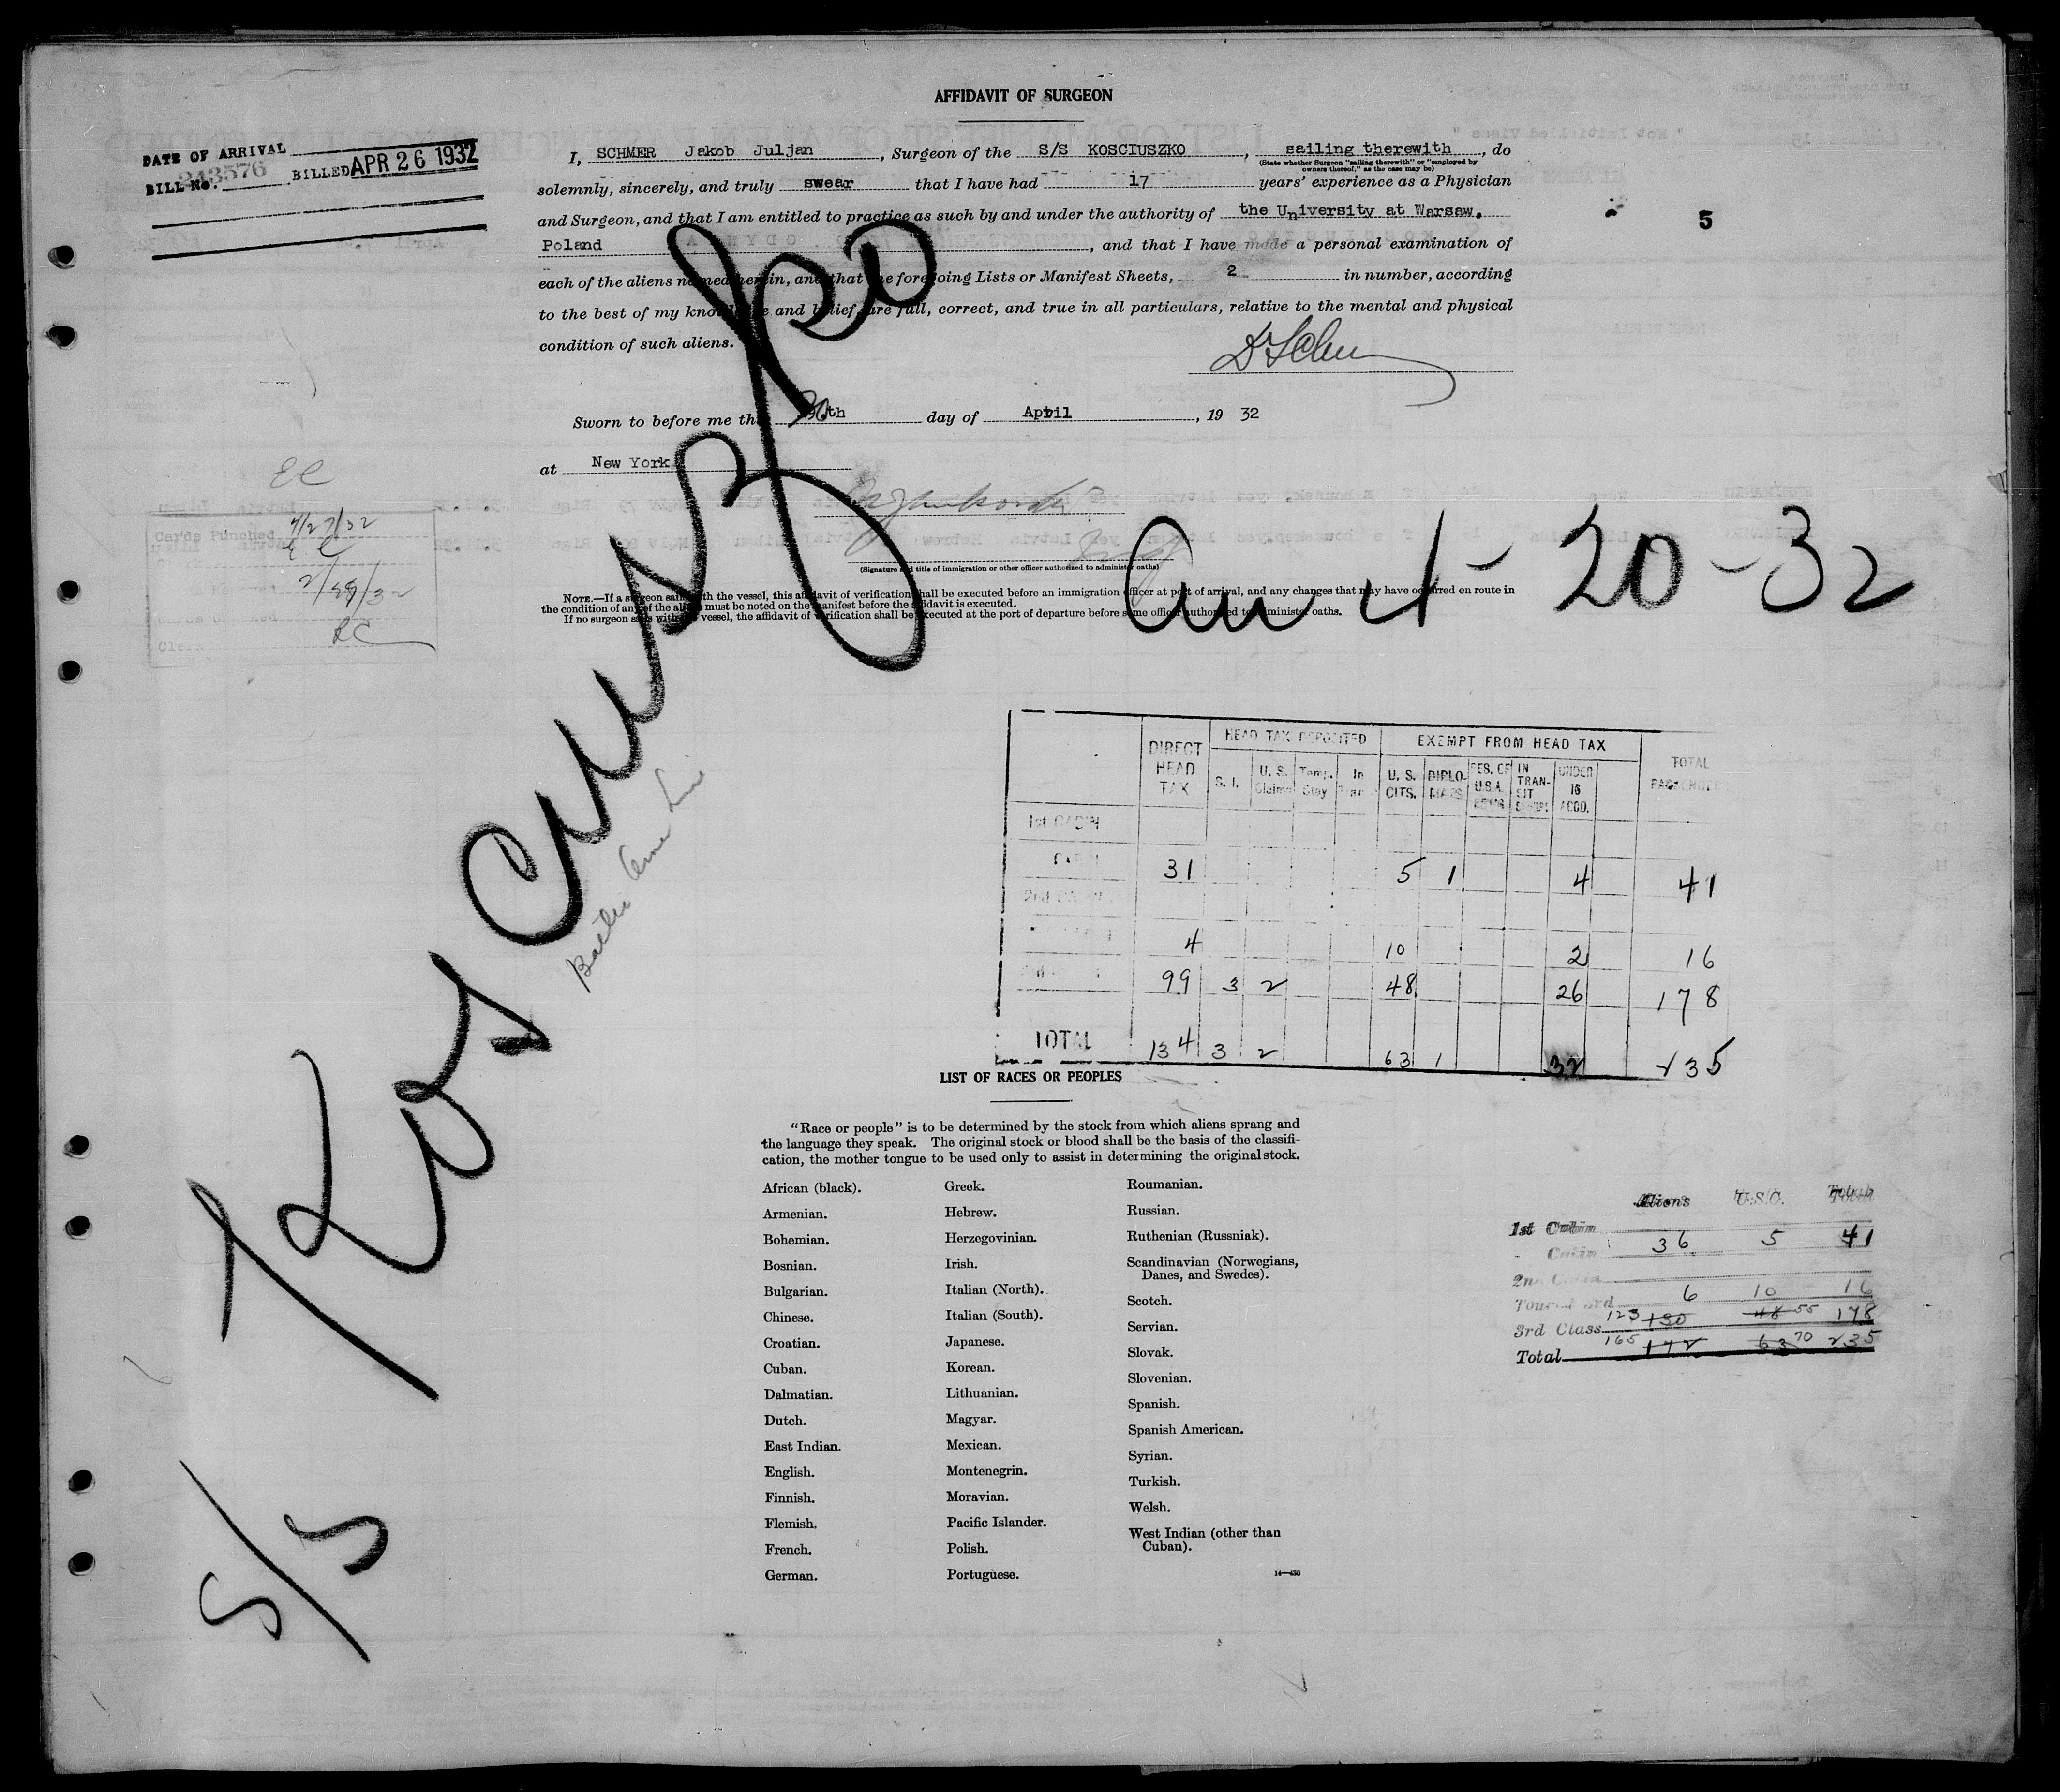 AFFIDAVIT OF SURGEON
DATE OF ARRIVAL
BILL No. 243576 BILLED APR 26 1932
I, SCHMER Jakob Juljan, Surgeon of the S/S KOSCIUSZKO, sailing therewith, do
(State whether Surgeon "sailing therewith" or "employed by
owners thereof," as the case may be)
solemnly, sincerely, and truly swear that I have had 17 years' experience as a Physician
and Surgeon, and that I am entitled to practice as such by and under the authority of the University at Warsaw.
Poland, and that I have made a personal examination of
5
each of the aliens named herein, and that the foregoing Lists or Manifest Sheets, 2 in number, according
to the best of my knowledge and belief, are full, correct, and true in all particulars, relative to the mental and physical
condition of such aliens.
Sworn to before me this 20th day of April, 1932
at New York
(Signature and title of immigration or other officer authorized to administer oaths)
NOTE.—If a surgeon sails with the vessel, this affidavit of verification shall be executed before an immigration officer at port of arrival, and any changes that may have occurred en route in
the condition of any of the aliens must be noted on the manifest before the affidavit is executed.
If no surgeon sails with the vessel, the affidavit of verification shall be executed at the port of departure before some officer authorized to administer oaths.
EC
Cards Punched 4/27/32
Clerk
S/S Kosciuszko
Arr 4-20-32
DIRECT HEAD TAX
HEAD TAX DEPOSITED
EXEMPT FROM HEAD TAX
TOTAL PASSENGERS
S. I. U. S. Claims Temp. Stay In Trans U. S. CITS. DIPLOMATS RES. OF U.S.A. IN TRANSIT UNDER 16 ACCD.
1st CABIN
CABIN 31 5 1 4 41
2nd CABIN
4 10 2 16
99 3 2 48 26 178
TOTAL 134 3 2 63 1 32 235
LIST OF RACES OR PEOPLES
"Race or people" is to be determined by the stock from which aliens sprang and
the language they speak. The original stock or blood shall be the basis of the classifi-
cation, the mother tongue to be used only to assist in determining the original stock.
African (black).
Armenian.
Bohemian.
Bosnian.
Bulgarian.
Chinese.
Croatian.
Cuban.
Dalmatian.
Dutch.
East Indian.
English.
Finnish.
Flemish.
French.
German.
Greek.
Hebrew.
Herzegovinian.
Irish.
Italian (North).
Italian (South).
Japanese.
Korean.
Lithuanian.
Magyar.
Mexican.
Montenegrin.
Moravian.
Pacific Islander.
Polish.
Portuguese.
Roumanian.
Russian.
Ruthenian (Russniak).
Scandinavian (Norwegians,
Danes, and Swedes).
Scotch.
Servian.
Slovak.
Slovenian.
Spanish.
Spanish American.
Syrian.
Turkish.
Welsh.
West Indian (other than
Cuban).
14—430
Aliens U.S.C. Total
1st Cabin
Cabin 36 5 41
2nd Cabin
Tourist 3rd 6 10 16
3rd Class 123 130 48 55 178
Total 165 172 63 70 235